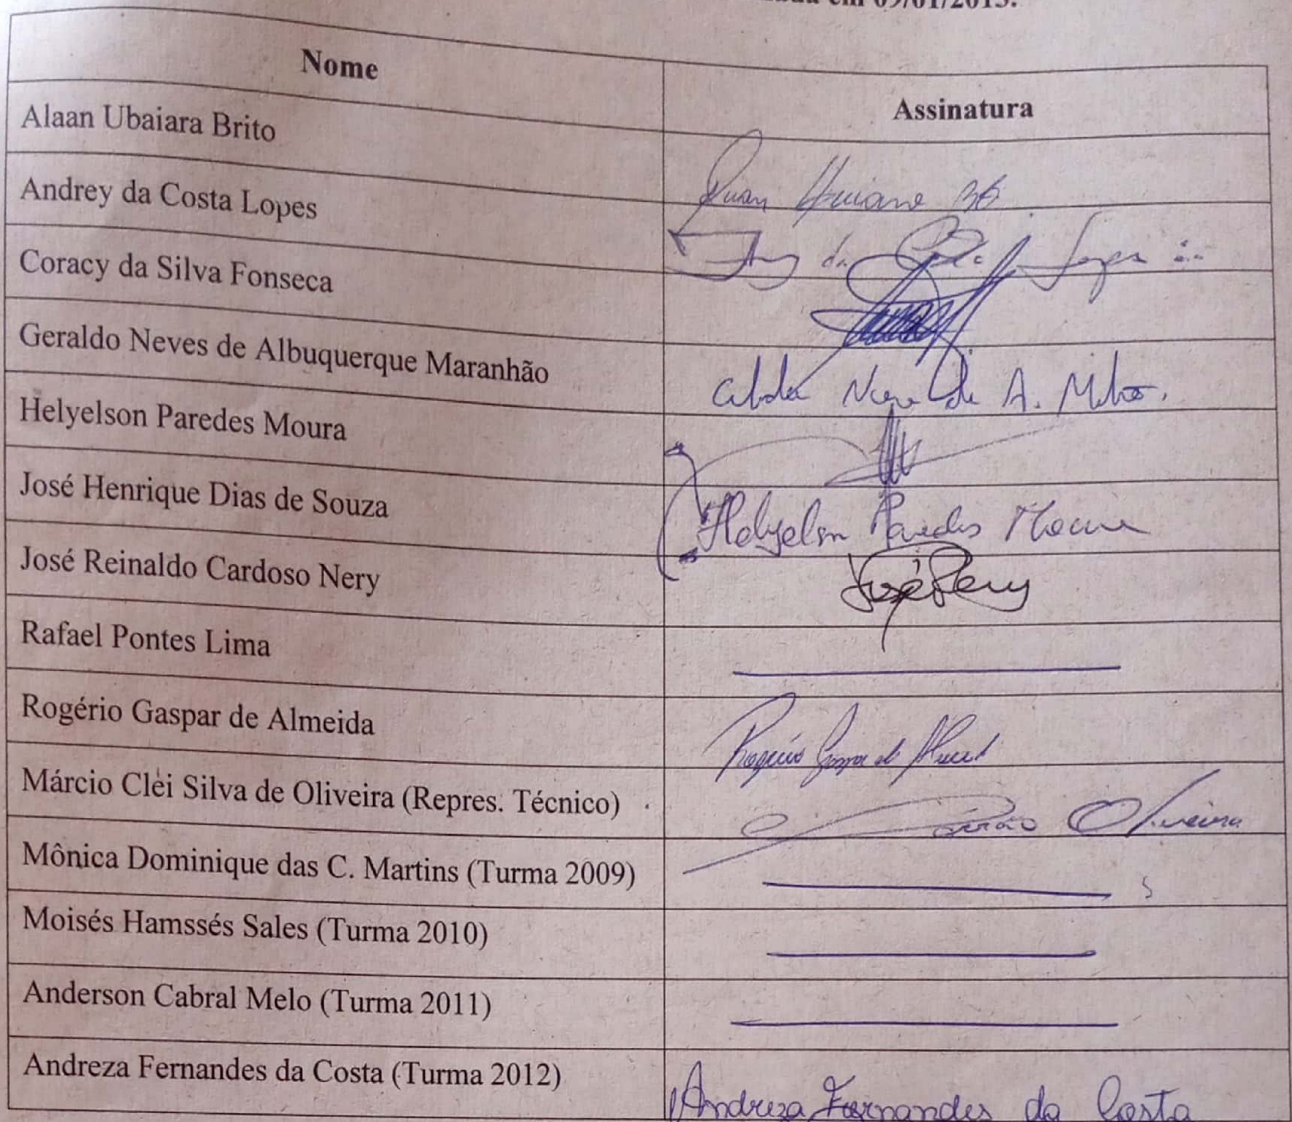 em 09/01/2013.
Nome
Assinatura
Alaan Ubaiara Brito
Andrey da Costa Lopes
da Lopes
Coracy da Silva Fonseca
Geraldo Neves de Albuquerque Maranhão
de A.
Helyelson Paredes Moura
José Henrique Dias de Souza
Helyelson Paredes Moura
José Reinaldo Cardoso Nery
José Nery
Rafael Pontes Lima
Rogério Gaspar de Almeida
Rogério Gaspar de
Márcio Clei Silva de Oliveira (Repres. Técnico)
Oliveira
Mônica Dominique das C. Martins (Turma 2009)
Moisés Hamssés Sales (Turma 2010)
Anderson Cabral Melo (Turma 2011)
Andreza Fernandes da Costa (Turma 2012)
Andreza Fernandes da Costa